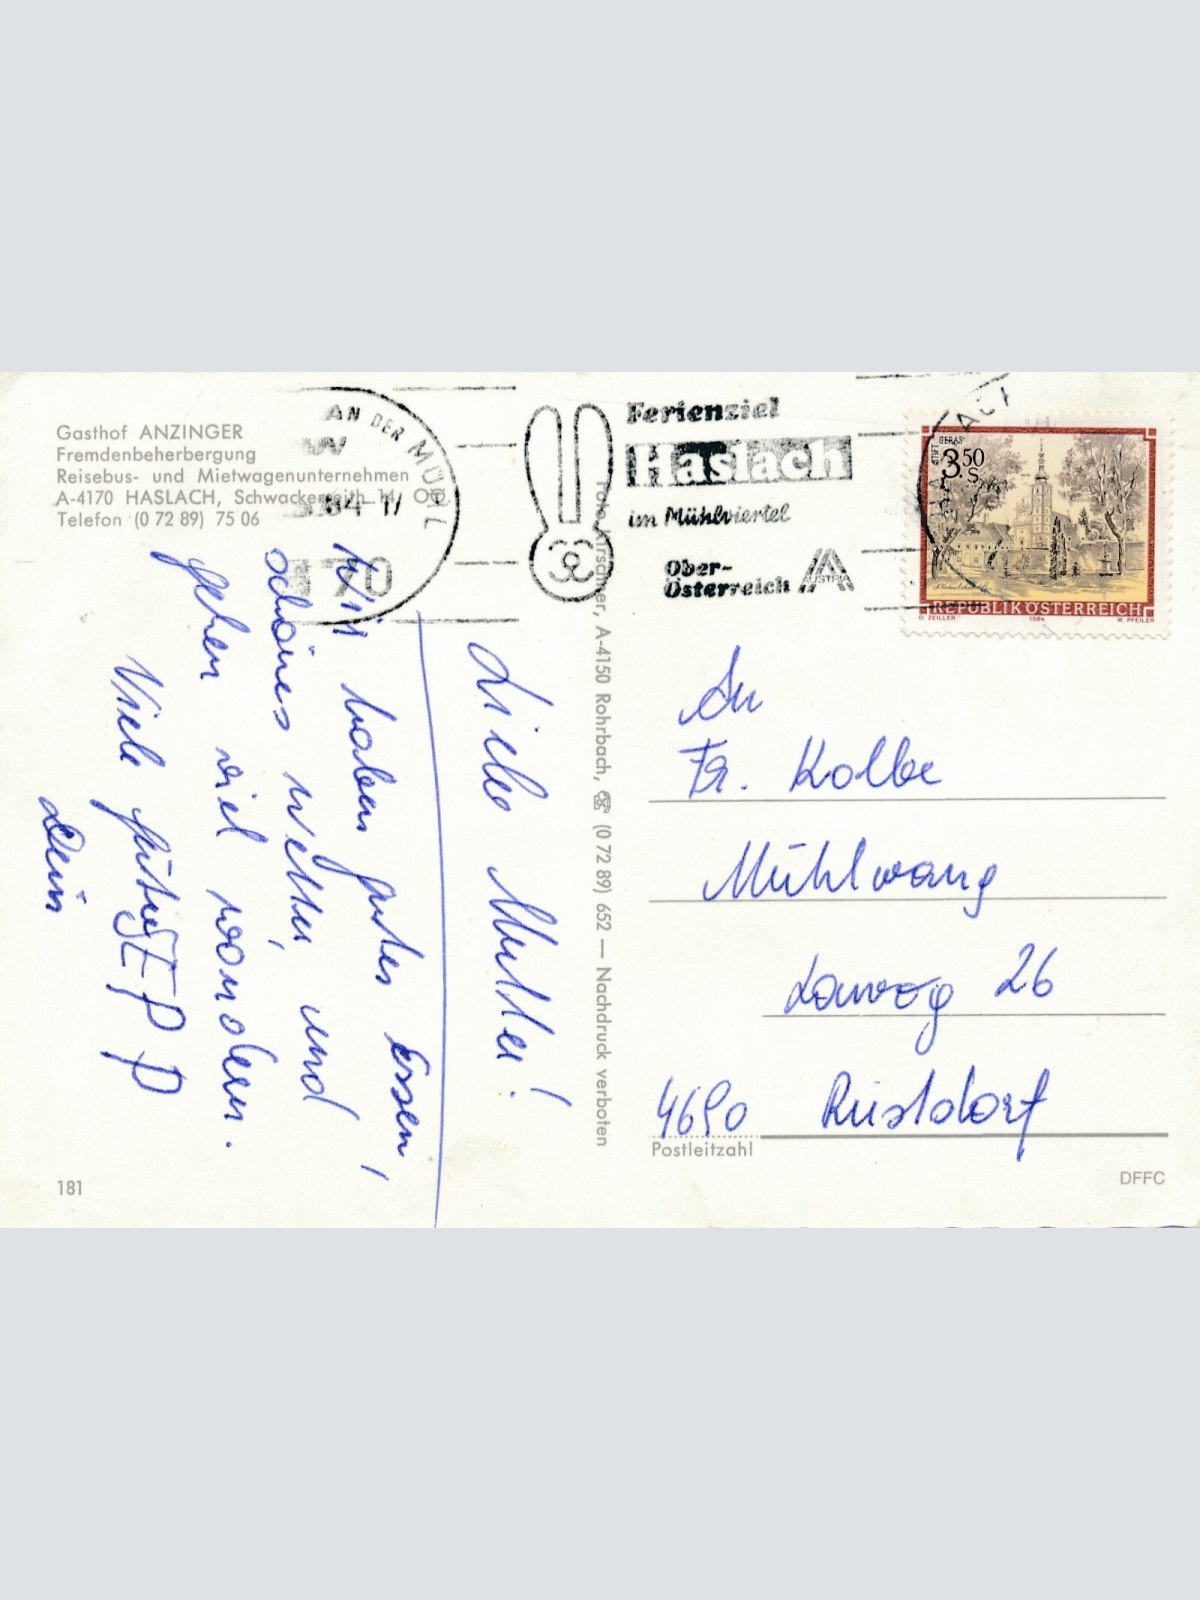 Gasthof ANZINGER
Fremdenbeherbergung
Reisebus- und Mietwagenunternehmen
A-4170 HASLACH, Schwackerreith 14
Telefon (0 72 89) 75 06
AN DER MÜHL
.84-17
Ferienziel
Haslach
im Mühlviertel
Ober-
Österreich
AUSTRIA
STIFT GERAS
3.50
S
REPUBLIK ÖSTERREICH
O. ZEILLER 1984 W. PFEILER
Liebe Mutter!
Wir haben gutes Essen,
schönes Wetter, und
gehen viel wandern.
Viele
Dein
Foto Kirschner, A-4150 Rohrbach, ☏ (0 72 89) 652 — Nachdruck verboten
An
Fr. Kolbe
Mühlwang
26
4690 Rüstdorf
Postleitzahl
181
DFFC